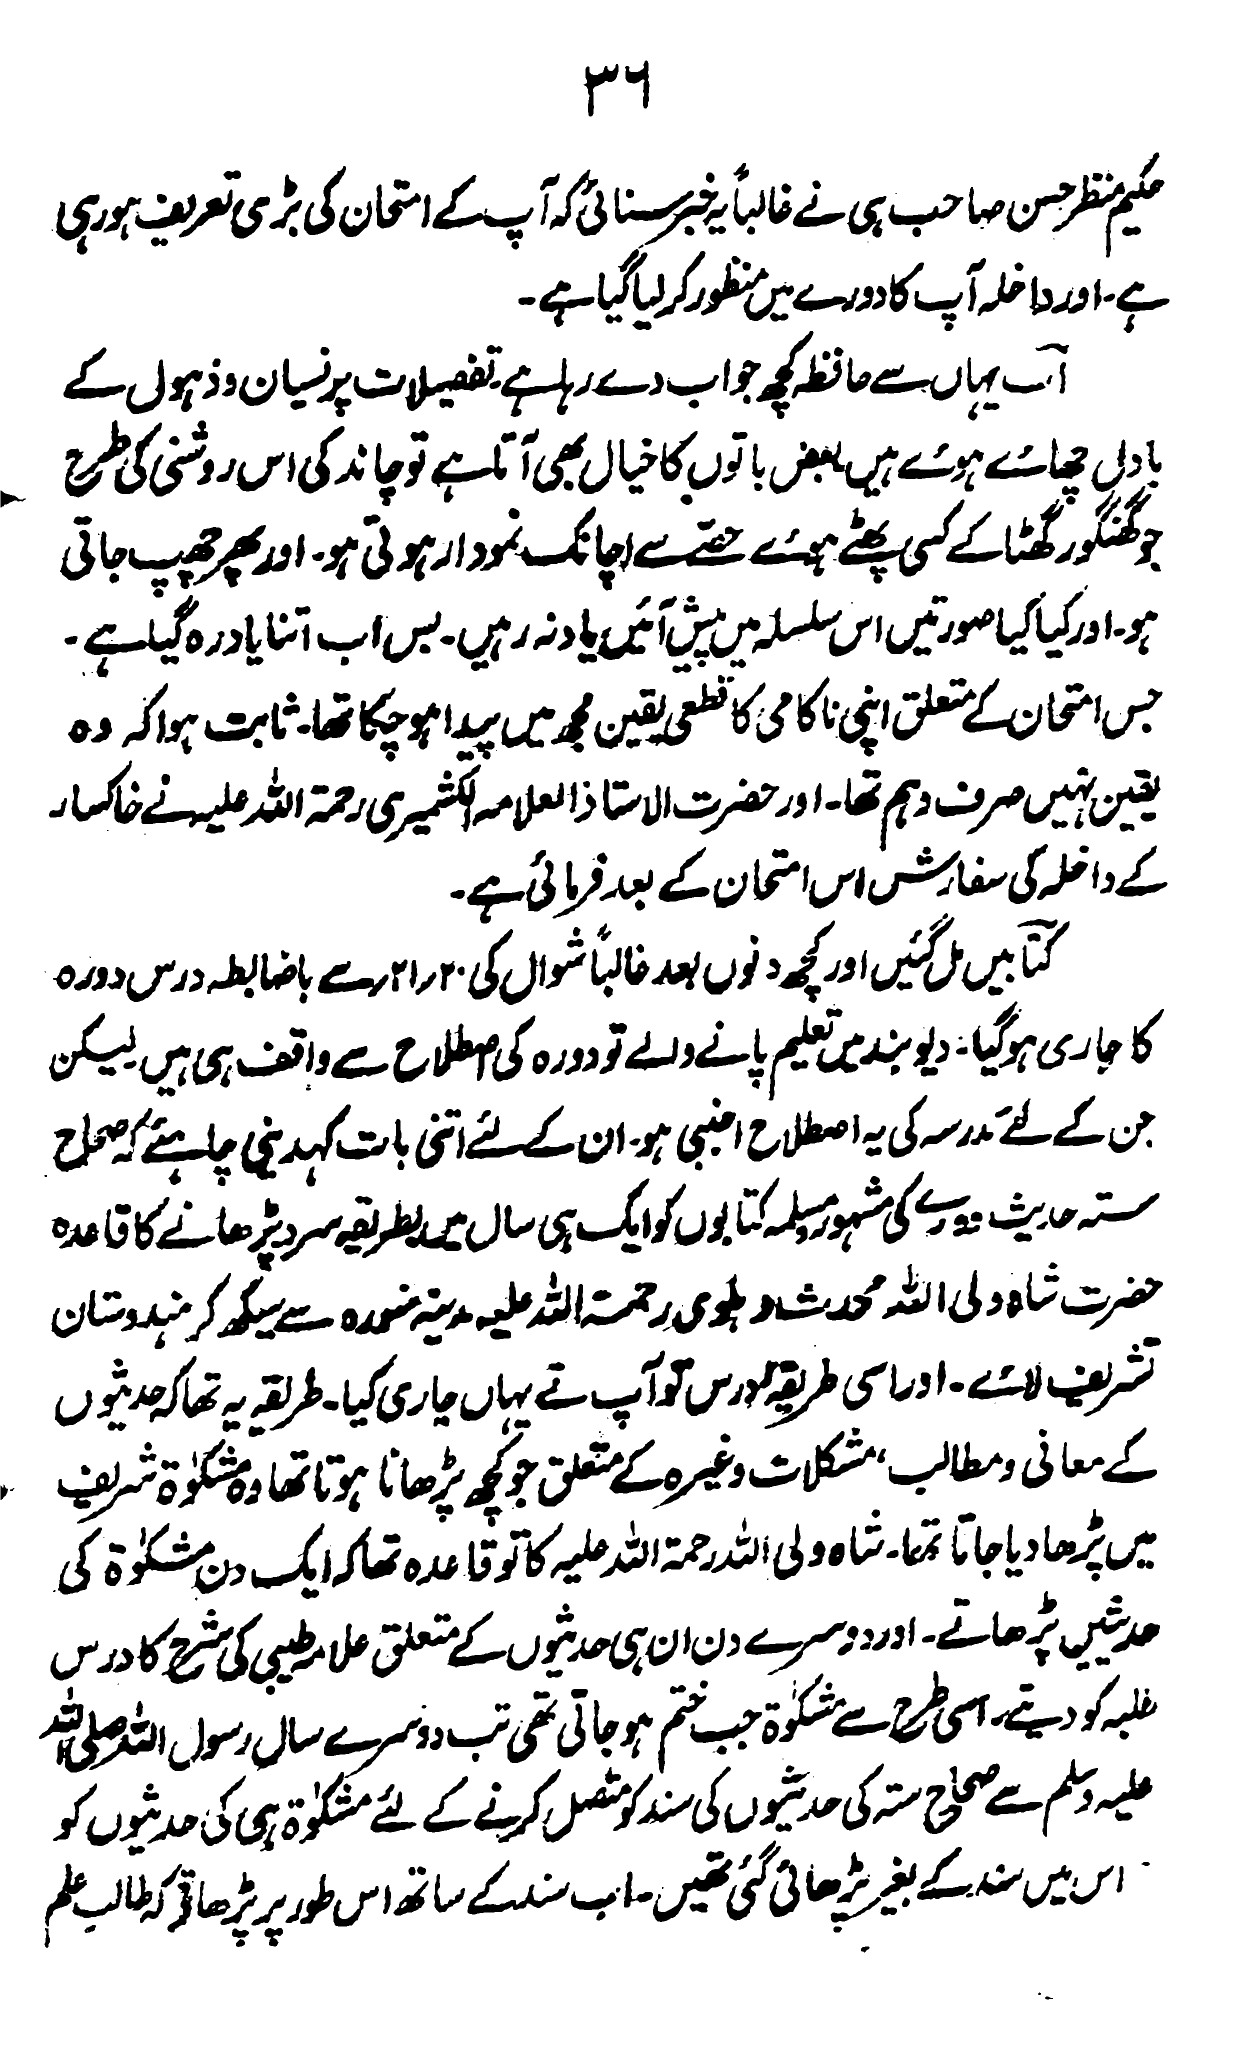 ۳۶
حکیم منظر حسن صاحب ہی نے غالباً یہ خبر سنائی کہ آپ کے امتحان کی بڑی تعریف ہو رہی
ہے۔ اور داخلہ آپ کا دورے میں منظور کر لیا گیا ہے۔
آب یہاں سے حافظہ کچھ جواب دے رہا ہے۔ تفصیلات پر نسیان و ذہول کے
بادل چھائے ہوئے ہیں بعض باتوں کا خیال بھی آتا ہے تو چاند کی اس روشنی کی طرح
جو گھنگور گھٹا کے کسی پھٹے ہوئے حصّے سے اچانک نمودار ہوتی ہو۔ اور پھر چھپ جاتی
ہو۔ اور کیا کیا صورتیں اس سلسلہ میں پیش آئیں یاد نہ رہیں۔ بس اب اتنا یاد رہ گیا ہے۔
جس امتحان کے متعلق اپنی ناکامی کا قطعی یقین مجھ میں پیدا ہو چکا تھا۔ ثابت ہوا کہ وہ
یقین نہیں صرف وہم تھا۔ اور حضرت الاستاذ العلامہ الکشمیری رحمۃ اللہ علیہ نے خاکسار
کے داخلہ کی سفارش اس امتحان کے بعد فرمائی ہے۔
کتابیں مل گئیں اور کچھ دنوں بعد غالباً شوال کی ۲۰؍۲۱؍سے باضابطہ درس دورہ
کا جاری ہو گیا۔ دیوبند میں تعلیم پانے والے تو دورہ کی اصطلاح سے واقف ہی ہیں لیکن
جن کے لئے مدرسہ کی یہ اصطلاح اجنبی ہو۔ ان کے لئے اتنی بات کہہ دینی چاہئے کہ صحاح
ستہ حدیث دورے کی مشہور و مسلمہ کتابوں کو ایک ہی سال میں بطریقہ سرد پڑھانے کا قاعدہ
حضرت شاہ ولی اللہ محدث دہلوی رحمۃ اللہ علیہ مدینہ منورہ سے سیکھ کر ہندوستان
تشریف لائے۔ اور اسی طریقہ درس کو آپ نے یہاں جاری کیا۔ طریقہ یہ تھا کہ حدیثوں
کے معانی و مطالب، مشکلات وغیرہ کے متعلق جو کچھ پڑھانا ہوتا تھا وہ مشکوٰۃ شریف
میں پڑھا دیا جاتا تھا۔ شاہ ولی اللہ رحمۃ اللہ علیہ کا تو قاعدہ تھا کہ ایک دن مشکوٰۃ کی
حدیثیں پڑھاتے۔ اور دوسرے دن ان ہی حدیثوں کے متعلق علامہ طیبی کی شرح کا درس
طلبہ کو دیتے۔ اسی طرح سے مشکوٰۃ جب ختم ہو جاتی تھی تب دوسرے سال رسول اللہ صلی اللہ
علیہ وسلم سے صحاح ستہ کی حدیثوں کی سند کو متصل کرنے کے لئے مشکوٰۃ ہی کی حدیثوں کو
اس میں سند کے بغیر پڑھائی گئی تھیں۔ اب سند کے ساتھ اس طور پر پڑھاتے کہ طالب علم